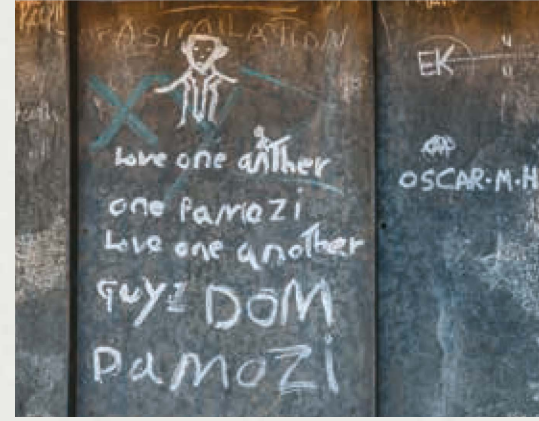 FASIMILATION
Love one anther
one Pamozi
Love one another
guyz DOM
PaMOZi
EK
OSCAR.M.H